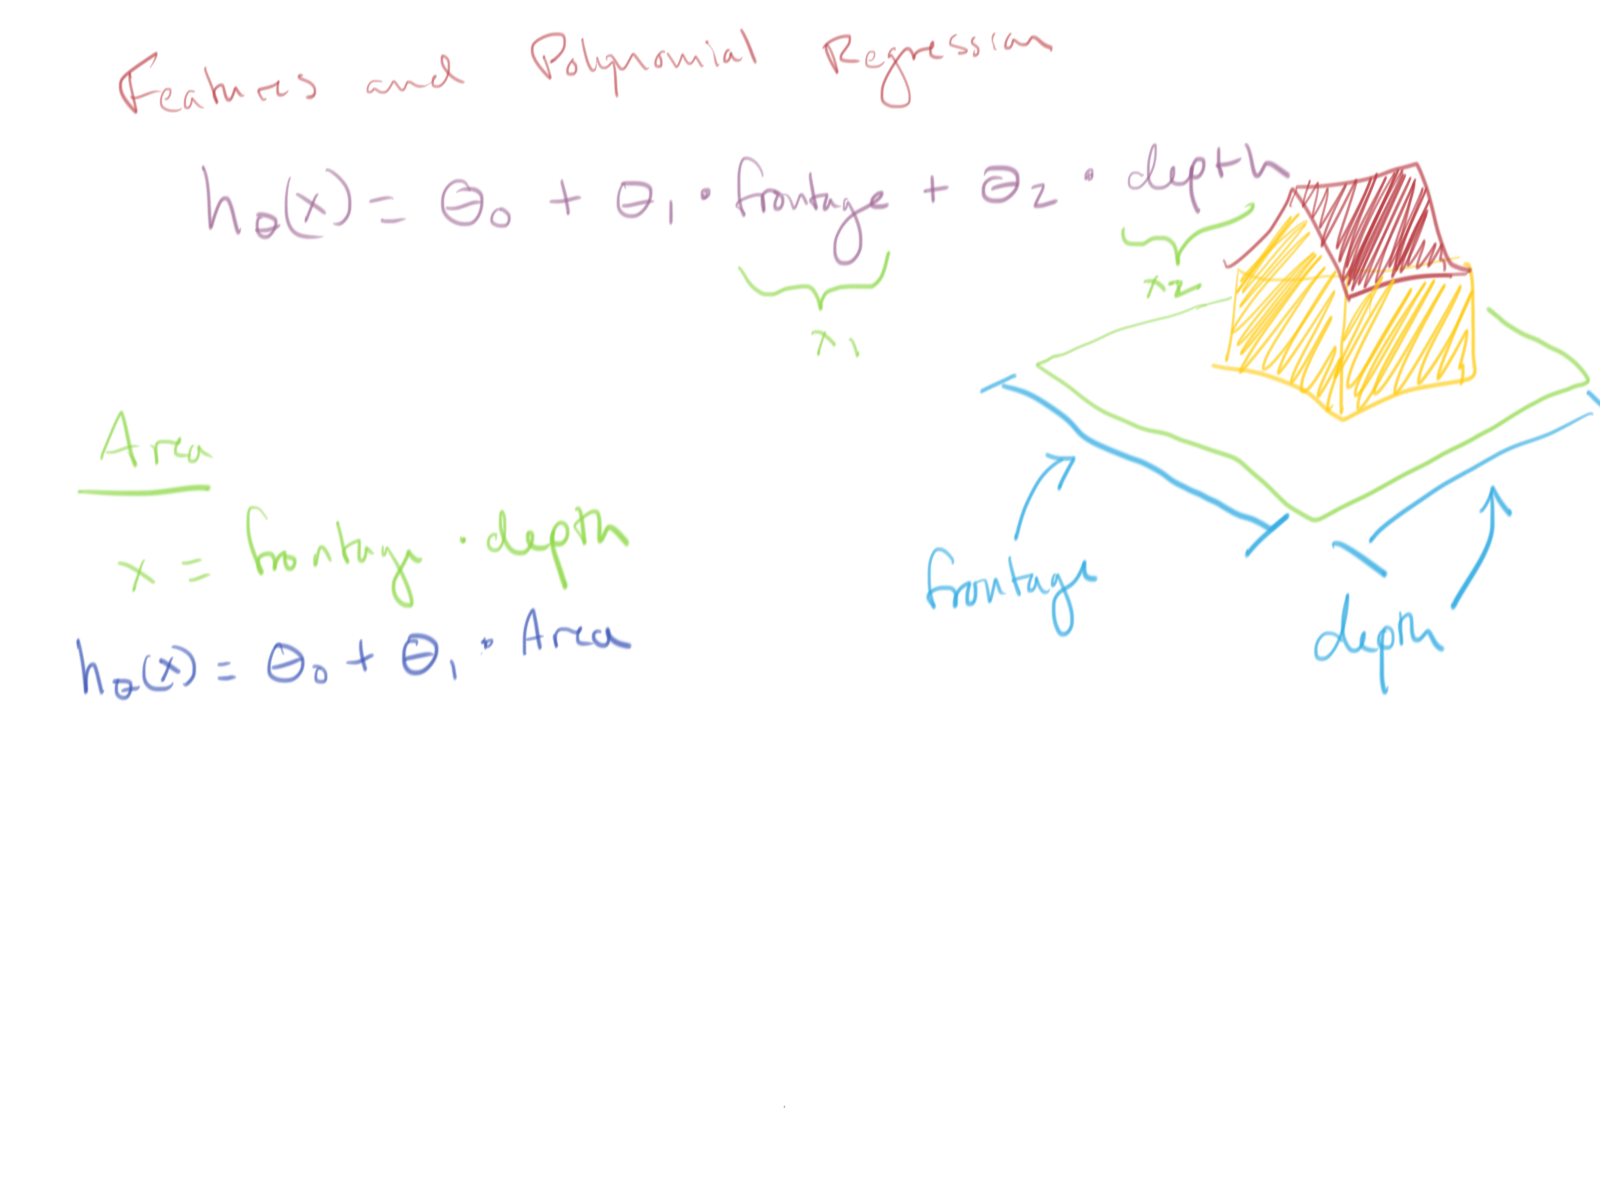 Features and Polynomial Regression
hθ(x) = θ0 + θ1 · frontage + θ2 · depth
x1
x2
Area
x = frontage · depth
hθ(x) = θ0 + θ1 · Area
frontage
depth